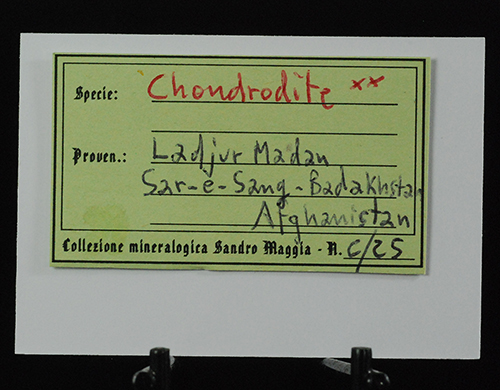 Specie: Chondrodite xx
Proven.: Ladjur Madan
Sar-e-Sang-Badakhstan
Afghanistan
Collezione mineralogica Sandro Maggia - N. C/25